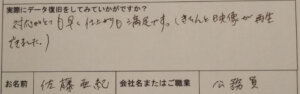 実際にデータ復旧をしてみていかがですか?
対応がとても早く仕上がりも満足です。(きちんと映像が再生
できました。)
お名前 佐藤亜紀 会社名またはご職業 公務員